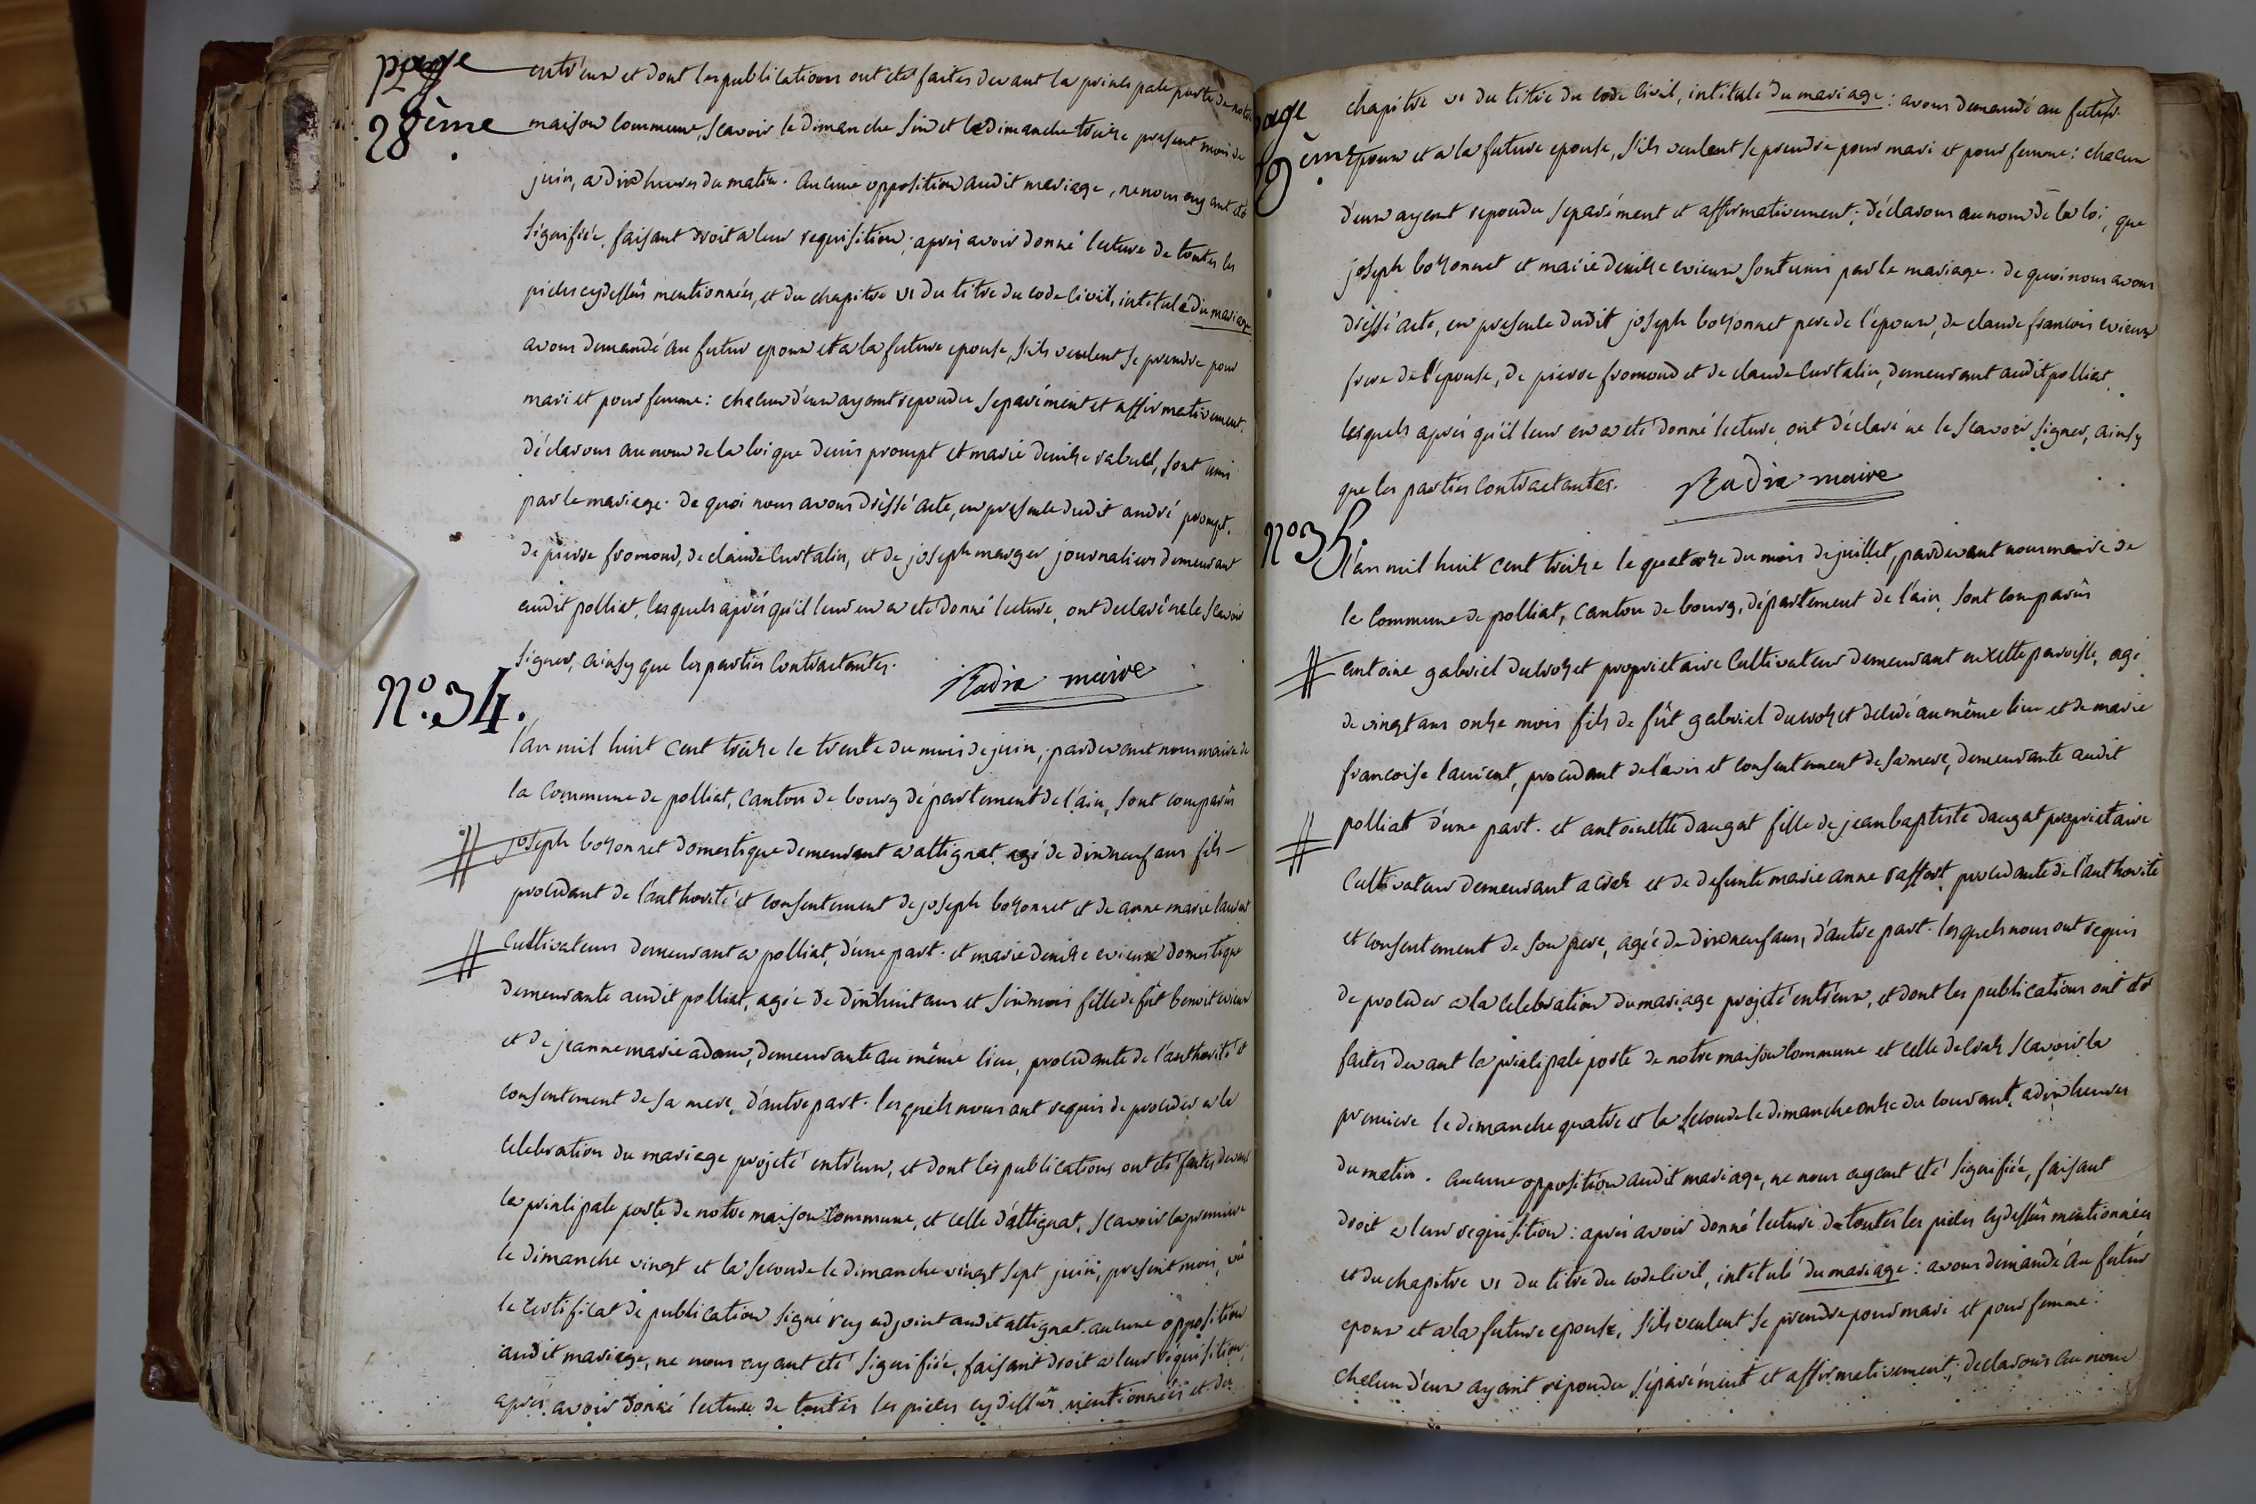 page
28ème
entr'eux et dont les publications ont été faites devant la principale porte de notre
maison commune, scavoir le dimanche six et le dimanche treize present mois de
juin, a dix heures du matin. aucune opposition audit mariage, ne nous ayant été
signifiée, faisant droit a leur requisition; après avoir donné lecture de toutes les
pieces cydessûs mentionnées, et du chapitre VI du titre du code civil, intitulé du mariage
avons demandé au futur epoux et a la future epouse, s'ils veulent se prendre pour
mari et pour femme: chacun d'eux ayant repondu separément et affirmativement.
déclarons au nom de la loi que denis prompt et marie denise rabuel, sont unis
par le mariage. de quoi nous avons dréssé acte, en presence dudit andré prompt,
de pierre fromond, de claude curtalin, et de joseph marger journaliers demeurant
audit polliat, lesquels après qu'il leur en a été donné lecture, ont declaré ne le scavoir
signer, ainsy que les parties contractantes. Radix maire
N.° 34.
l'an mil huit cent treize le trente du mois de juin, pardevant nous maire de
la commune de polliat, canton de bourg département de l'ain, sont comparûs
joseph bozonnet domestique demeurant a attignat agé de dixneuf ans fils
procédant de l'authorité et consentement de joseph bozonnet et de anne marie laurent
cultivateurs demeurant a polliat, d'une part. et marie denise evieux domestique
demeurante audit polliat, agée de dixhuit ans et six mois fille de fût benoit evieux
et de jeanne marie adam, demeurante au même lieu, procédante de l'authorité et
consentement de sa mere, d'autre part. lesquels nous ont requis de proceder a la
celebration du mariage projeté entr'eux, et dont les publications ont été faites devant
la principale porte de notre maison commune, et celle d'attignat, scavoir la premiere
le dimanche vingt et la seconde le dimanche vingt sept juin, present mois, vû
le certificat de publication signé rey adjoint audit attignat. aucune opposition
audit mariage, ne nous ayant été signifiée, faisant droit a leur réquisition;
après avoir donné lecture de toutes les pieces cydessûs mentionnées et du
page
9ème
chapitre VI du titre du code civil, intitulé du mariage: avons demandé au futur
epoux et a la future epouse, s'ils veulent se prendre pour mari et pour femme: chacun
d'eux ayant repondu separément et affirmativement; déclarons au nom de la loi, que
joseph bozonnet et marie denise evieux sont unis par le mariage. de quoi nous avons
dréssé acte, en presence dudit joseph bozonnet pere de l'epoux, de claude francois evieux
frere de l'epouse, de pierre fromond et de claude curtalin, demeurant audit polliat,
lesquels après qu'il leur en a été donné lecture, ont déclaré ne le scavoir signer, ainsy
que les parties contractantes. Radix maire
N° 35.
l'an mil huit cent treize le quatorze du mois de juillet, pardevant nous maire de
la commune de polliat, canton de bourg, département de l'ain, sont comparûs
antoine gabriel ducrozet proprietaire cultivateur demeurant en cette paroisse, agé
de vingt ans onze mois fils de fût gabriel ducrozet decédé au même lieu et de marie
francoise laurent, procédant de l'avis et consentement de sa mere, demeurante audit
polliat d'une part. et antoinette daugat fille de jean baptiste daugat proprietaire
cultivateur demeurant a craz et de defunte marie anne raffort, procedante de l'authorité
et consentement de son pere, agée de dixneuf ans, d'autre part. lesquels nous ont requis
de proceder a la celebration du mariage projeté entr'eux, et dont les publications ont été
faites devant la principale porte de notre maison commune et celle de craz scavoir la
premiere le dimanche quatre et la seconde le dimanche onze du courant, a dix heures
du matin. aucune opposition audit mariage, ne nous ayant été signifiée, faisant
droit a leur requisition: après avoir donné lecture de toutes les pieces cydessûs mentionnées
et du chapitre VI du titre du code civil, intitulé du mariage: avons demandé au futur
epoux et a la future epouse, s'ils veulent se prendre pour mari et pour femme:
chacun d'eux ayant répondu séparément et affirmativement; declarons au nom